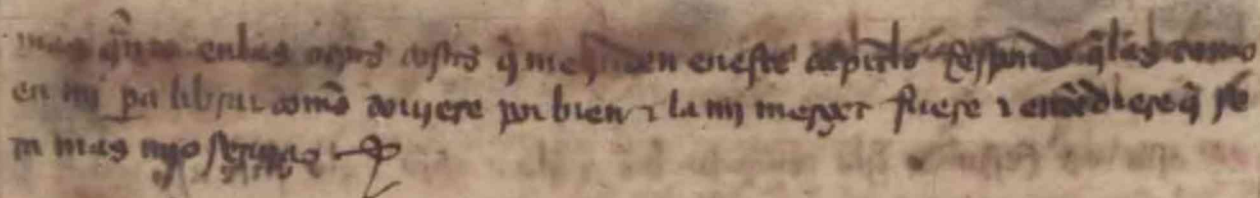 mas q̃nto en las otrs cosas q̃ me piden en este capitlo Respondo q̃ las tomo
en mi pa librar como touiere por bien ⁊ la mi merçet fuere ⁊ entẽdiere q̃ se
ra mas myo seruiçio